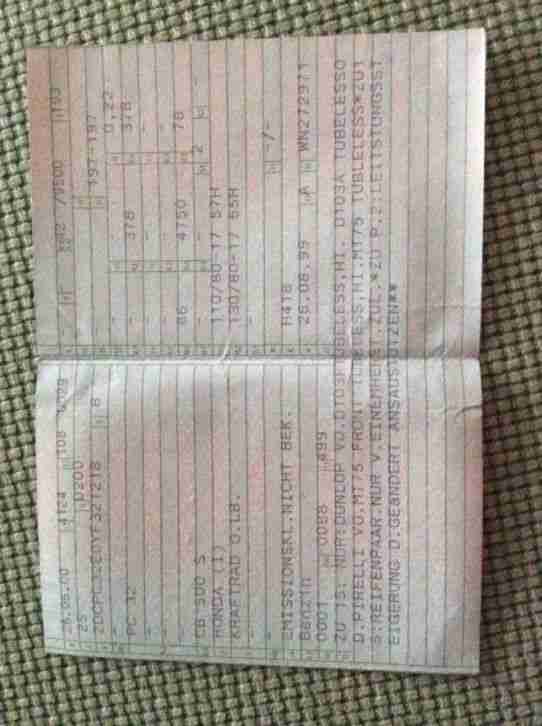 26.05.00 4124 108 6009
25 0200
ZDCPC32E0YF321218 B
PC 32
CB 500 S
HONDA (I)
KRAFTRAD O.LB.
EMISSIONSKL.NICHT BEK.
Benzin
0001 0088 499
/9500
197-197
0,22
378 378
86 4750 78
2 -
110/80-17 57H
130/80-17 55H
-/-
H418
26.08.99 A WN272971
ZU 15: NUR:DUNLOP VO.D103F TUBELESS,HI. D103A TUBELESSO
D.PIRELLI VO.MT75 FRONT TUBELESS,HI.MT75 TUBLELESS*ZU1
5:REIFENPAAR NUR V.EINEMHERST.ZUL.*ZU P.2:LEITSTUNGSST
EIGERUNG D.GEÄNDERT ANSAUGSTUTZEN**